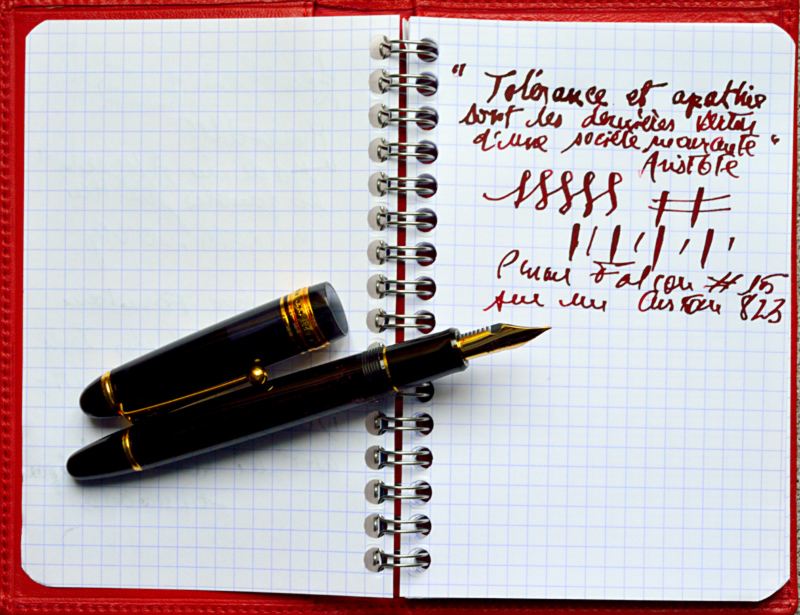 " Tolérance et apathie
sont les dernières vertus
d'une société mourante "
Aristote
Plume Falcon # 15
sur un Custom 823